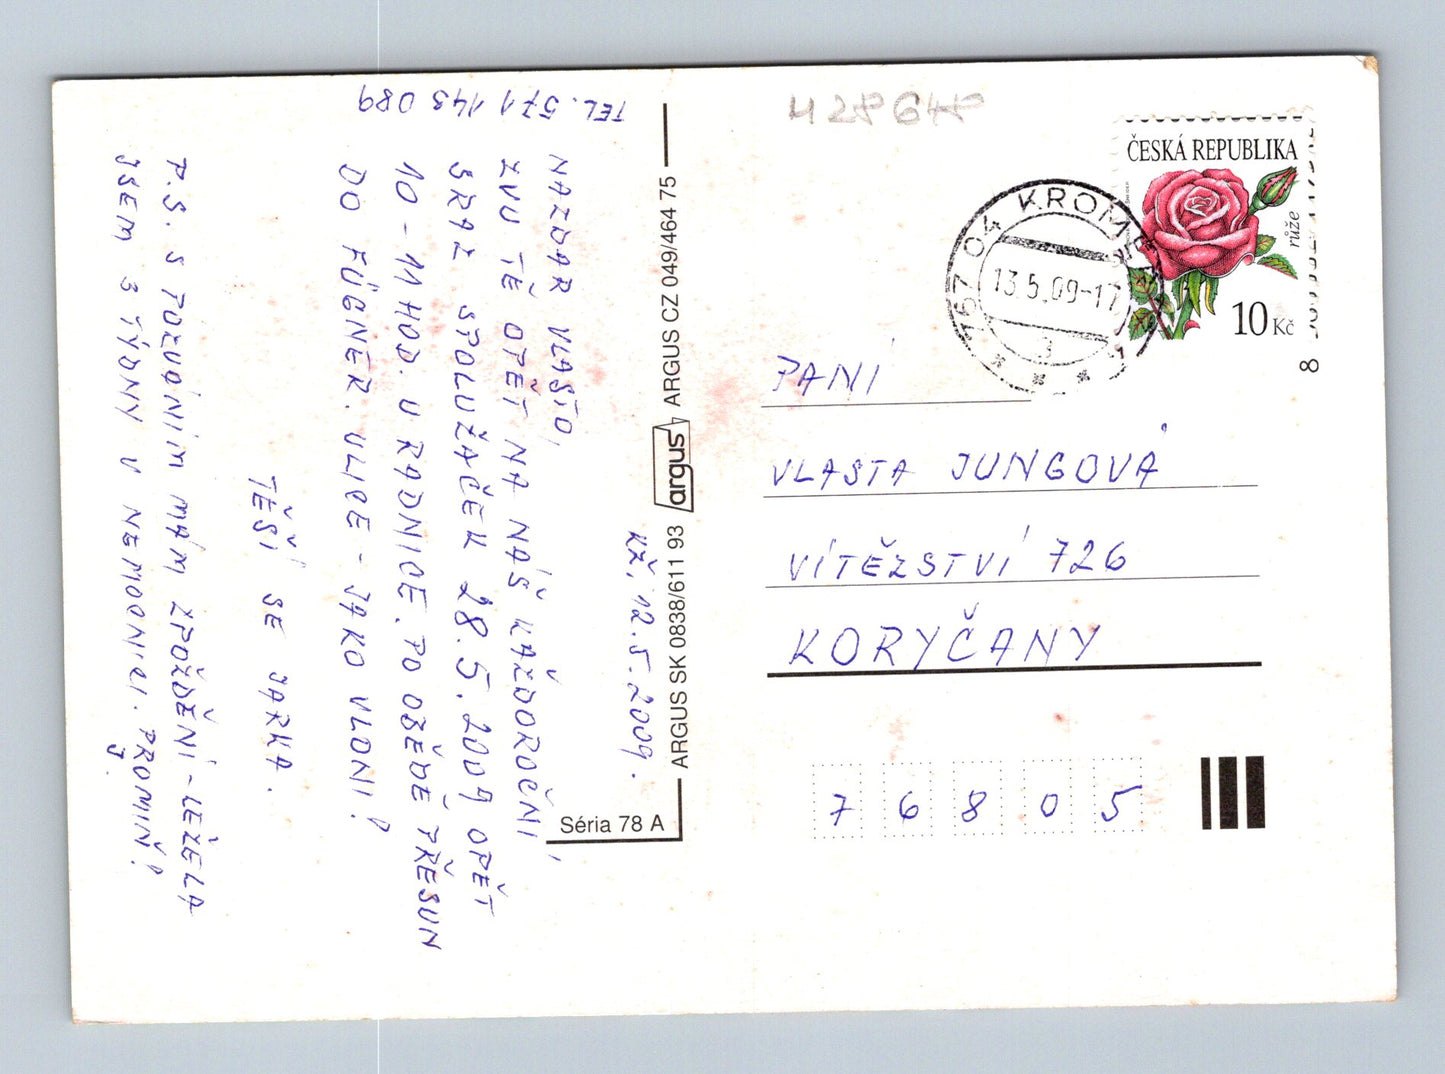 KŽ, 12.5.2009.
NAZDAR VLASTO,
ZVU TĚ OPĚT NA NÁŠ KAŽDOROČNÍ,
SRAZ SPOLUŽAČEK 28.5.2009 OPĚT
10-11 HOD. V RADNICE. PO OBĚDĚ PŘESUN
DO FÜGNER. ULICE - JAKO VLONI!
TĚŠÍ SE JARKA.
P.S. S POZVÁNÍM MÁM ZPOŽDĚNÍ - LEŽELA
JSEM 3 TÝDNY V NEMOCNICI. PROMIŇ!
J.
TEL. 571 143 089
ARGUS SK 0838/611 93 argus ARGUS CZ 049/464 75
Séria 78 A
ČESKÁ REPUBLIKA
růže
10 Kč
8
767 04 KROMĚ
13.5.09-17
3
PANÍ
VLASTA JUNGOVÁ
VÍTĚZSTVÍ 726
KORYČANY
76805